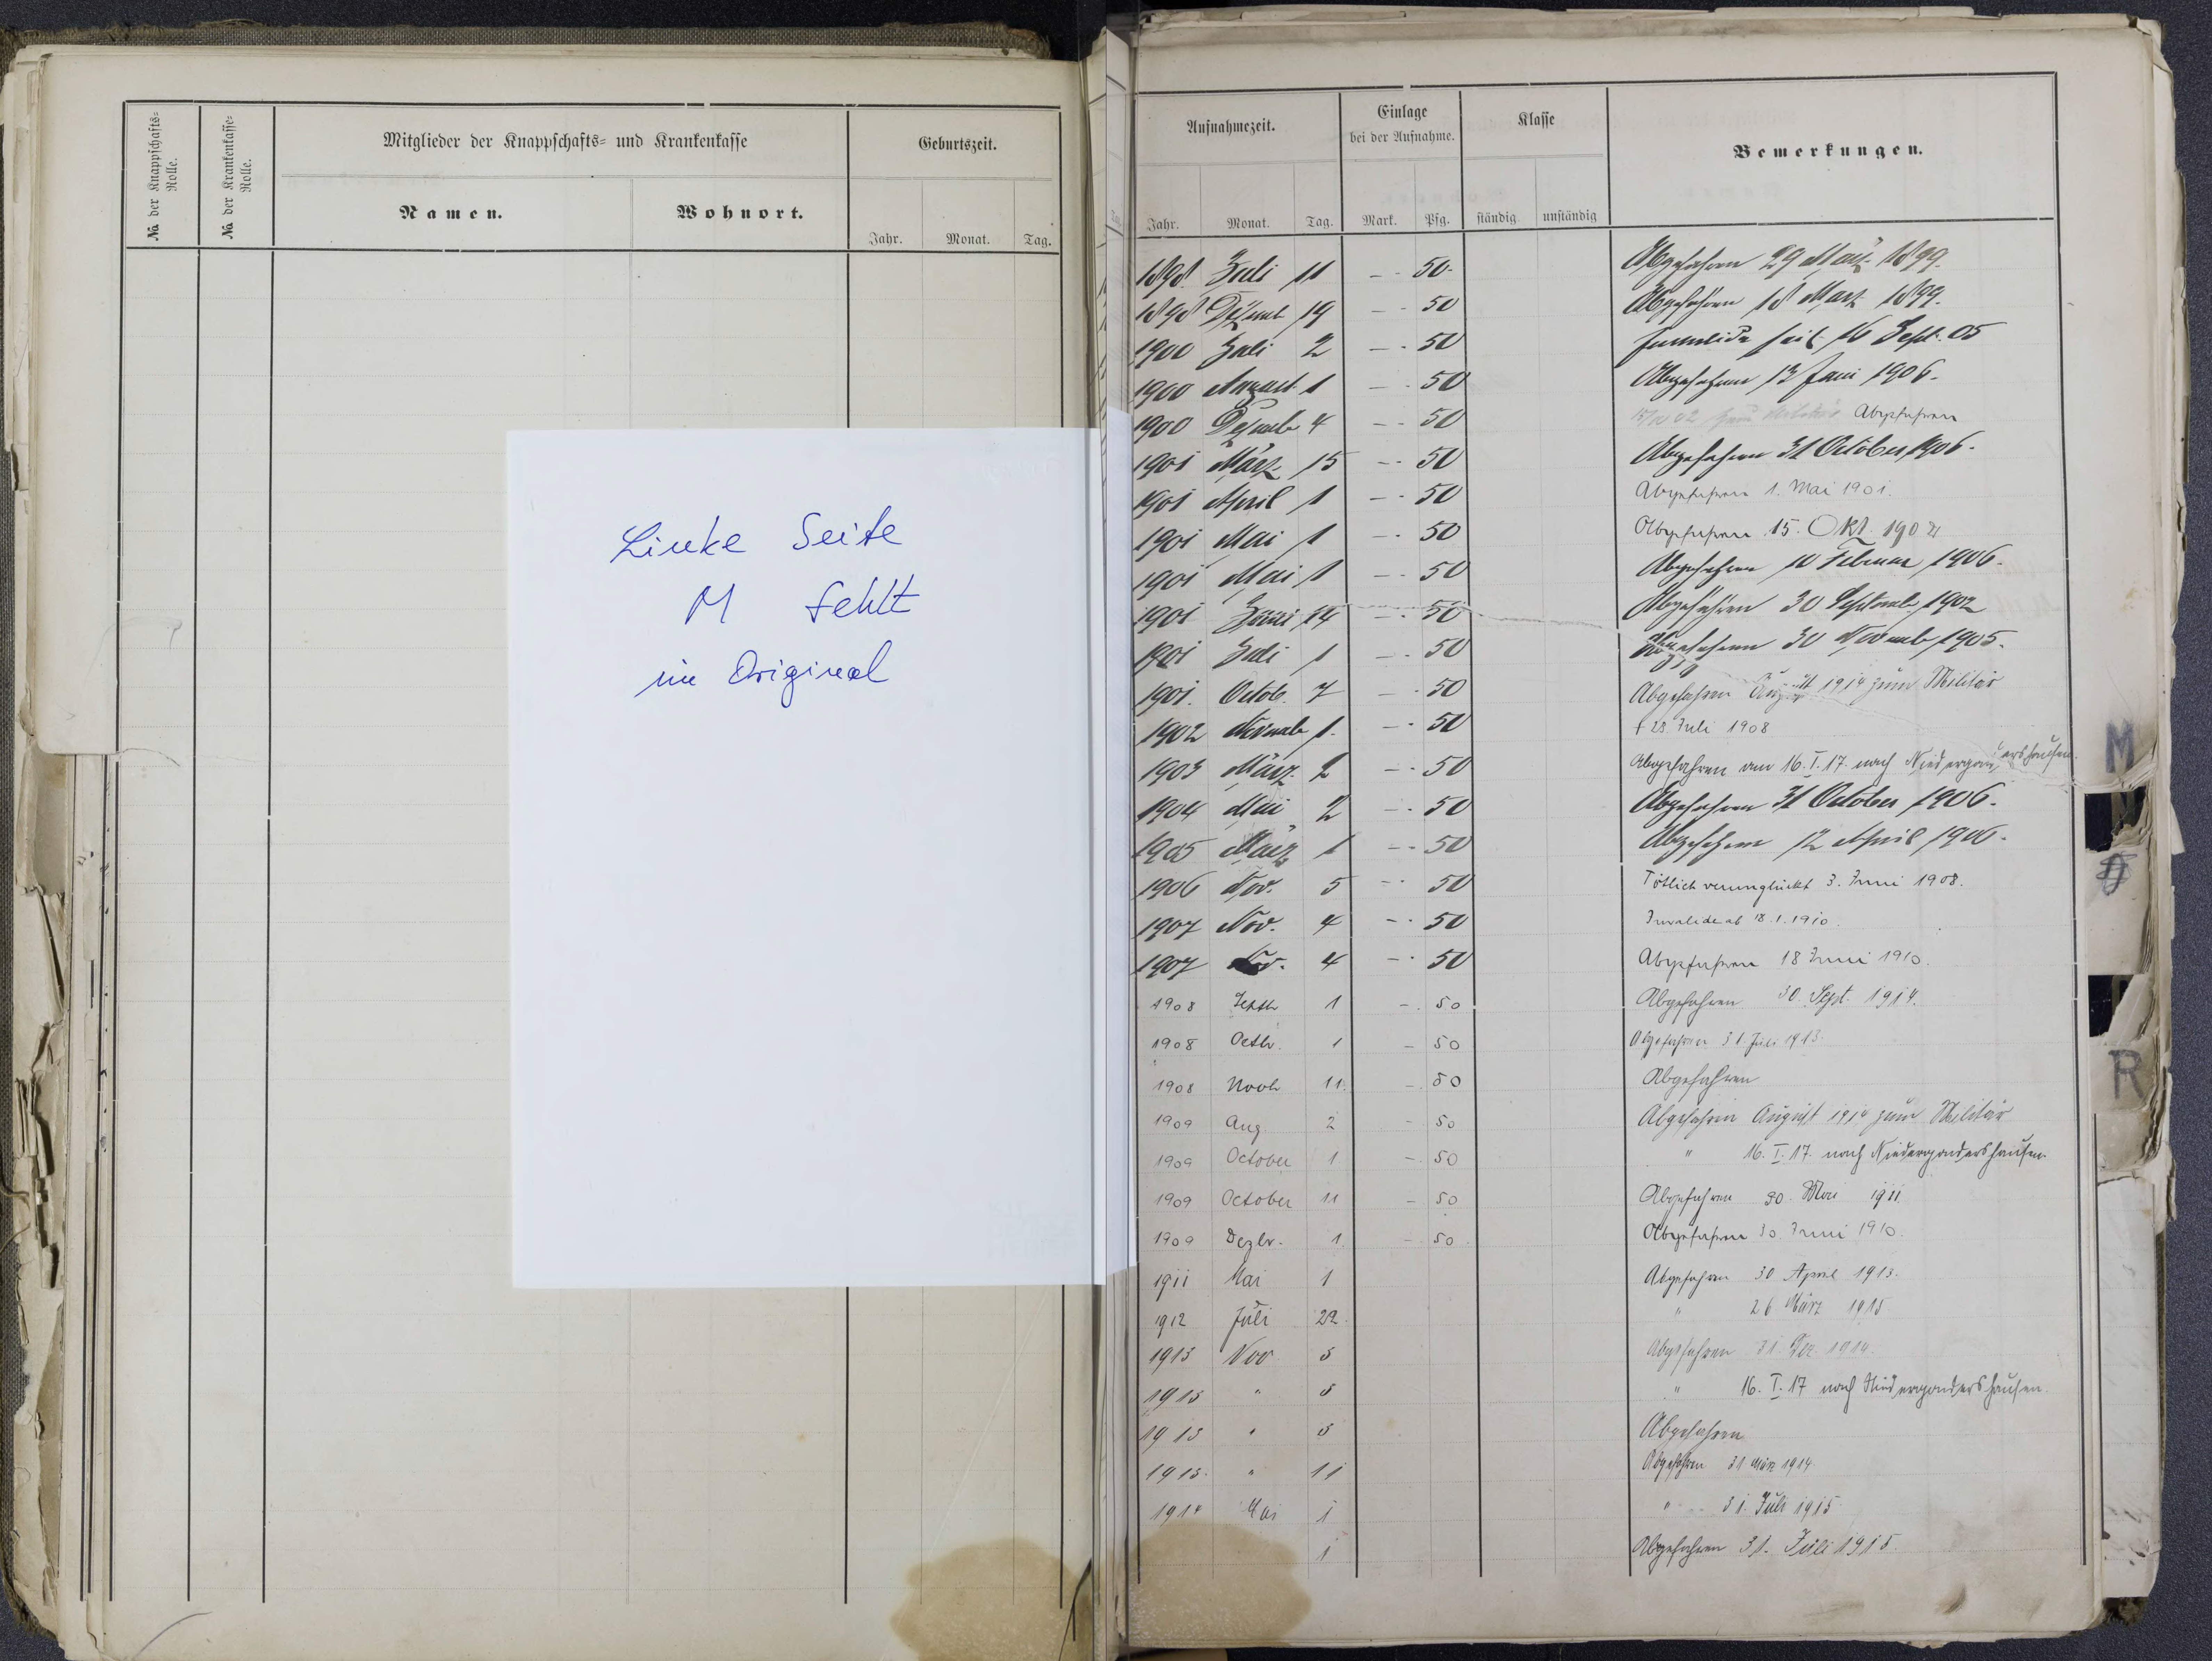 № der Knappschafts-Rolle.
№ der Krankenkasse-Rolle.
Mitglieder der Knappschafts- und Krankenkasse
Geburtszeit.
Namen.
Wohnort.
Jahr.
Monat.
Tag.
Linke Seite
M fehlt
im Original
Aufnahmezeit.
Einlage
bei der Aufnahme.
Klasse
Bemerkungen.
Jahr.
Monat.
Tag.
Mark.
Pfg.
ständig
unständig
1898 Juli 11 — 50 Abgefahren 29 März 1899.
1898 Dezemb 19 — 50 Abgefahren 18 März 1899.
1900 Juli 2 — 50 Invalide seit 16 Sept. 05
1900 August 1 — 50 Abgefahren 13 Juni 1906.
1900 Dezemb 4 — 50 zum Militär Abgefahren
1901 März 15 — 50 Abgefahren 31 October 1906.
1901 April 1 — 50 Abgefahren 1. Mai 1901.
1901 Mai 1 — 50 Abgefahren 15. Okt.
1901 Mai 1 — 50 Abgefahren 10 Februar 1906.
1901 Juni 14 — 50 Abgefahren 30 Septemb 1902
1901 Juli 1 — 50 Abgefahren 30 Novemb 1905.
1901. Octob. 7 — 50 Abgefahren August 1914 zum Militär
1902 Novemb 1. — 50 † 28. Juli 1908
1903 März 2 — 50 Abgefahren am 16. I. 17. nach Niedergondershausen
1904 Mai 2 — 50 Abgefahren 31 October 1906.
1905 März 1 — 50 Abgefahren 12 April 1906.
1906 Nov. 5 — 50 Tötlich verunglückt 3. Juni 1908.
1907 Nov. 4 — 50 Invalide ab 18.1.1910.
1907 Nov. 4 — 50 Abgefahren 18 Juni 1910.
1908 Septb 1 — 50 Abgefahren 30. Sept. 1914.
1908 Octbr. 1 — 50 Abgefahren 31. Juli 1913.
1908 Novb 11. — 50 Abgefahren
1909 Aug 2 — 50 Abgefahren August 1914 zum Militär
1909 October 1 — 50 " 16. I. 17. nach Niedergondershausen.
1909 October 11 — 50 Abgefahren 30. Mai 1911
1909 Dezbr. 1 — 50 Abgefahren 30. Juni 1910.
1911 Mai 1 Abgefahren 30 April 1913.
1912 Juli 22. " 26 März 1915
1913 Nov 5 Abgefahren 31. Dez. 1914.
1913 " 5 " 16. I. 17 nach Niedergondershausen.
1913 " 5 Abgefahren
1913. " 11 Abgefahren 31. März 1914.
1914 Mai 1 " 31. Juli 1915
1 Abgefahren 31. Juli 1915.
M
R